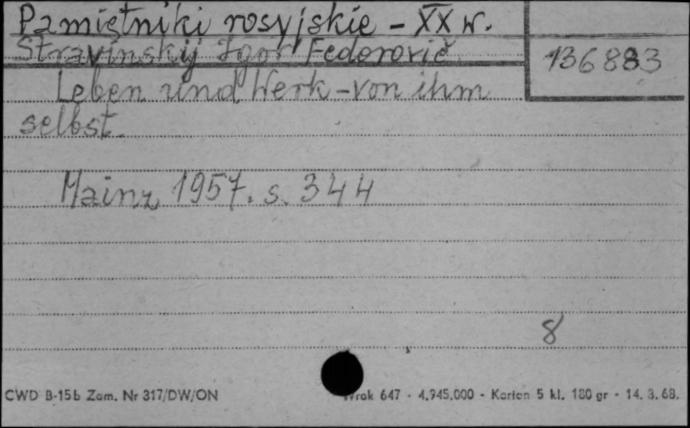 Pamiętniki rosyjskie - XX w.
Stravinskij Igor' Fedorovič
136883
Leben und Werk - von ihm
selbst.
Mainz 1957. s. 344
8
CWD B-15b Zam. Nr 317/DW/ON
647 - 4.945.000 - Karton 5 kl. 180 gr - 14. 3. 68.